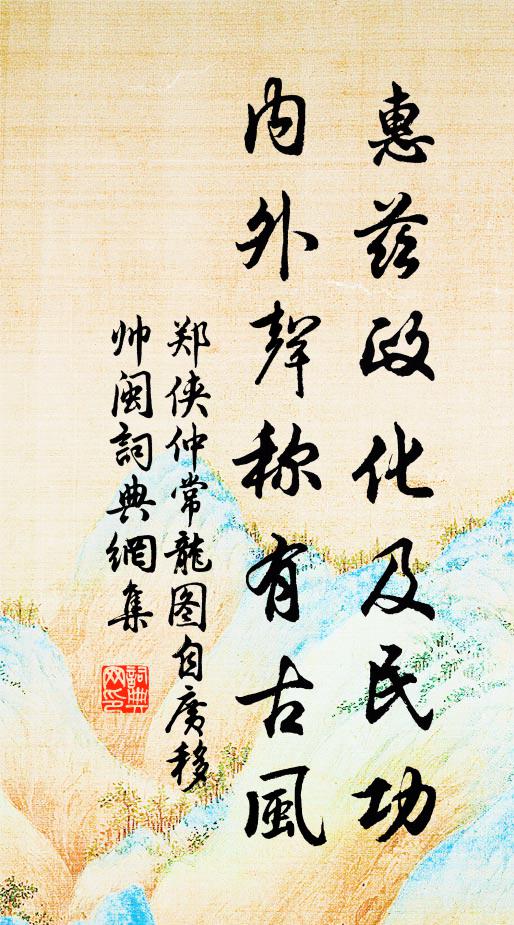 惠兹政化及民功
内外声称有古風
郑侠仲常龍图自廣移
帅闽詞典網集
詞典網印